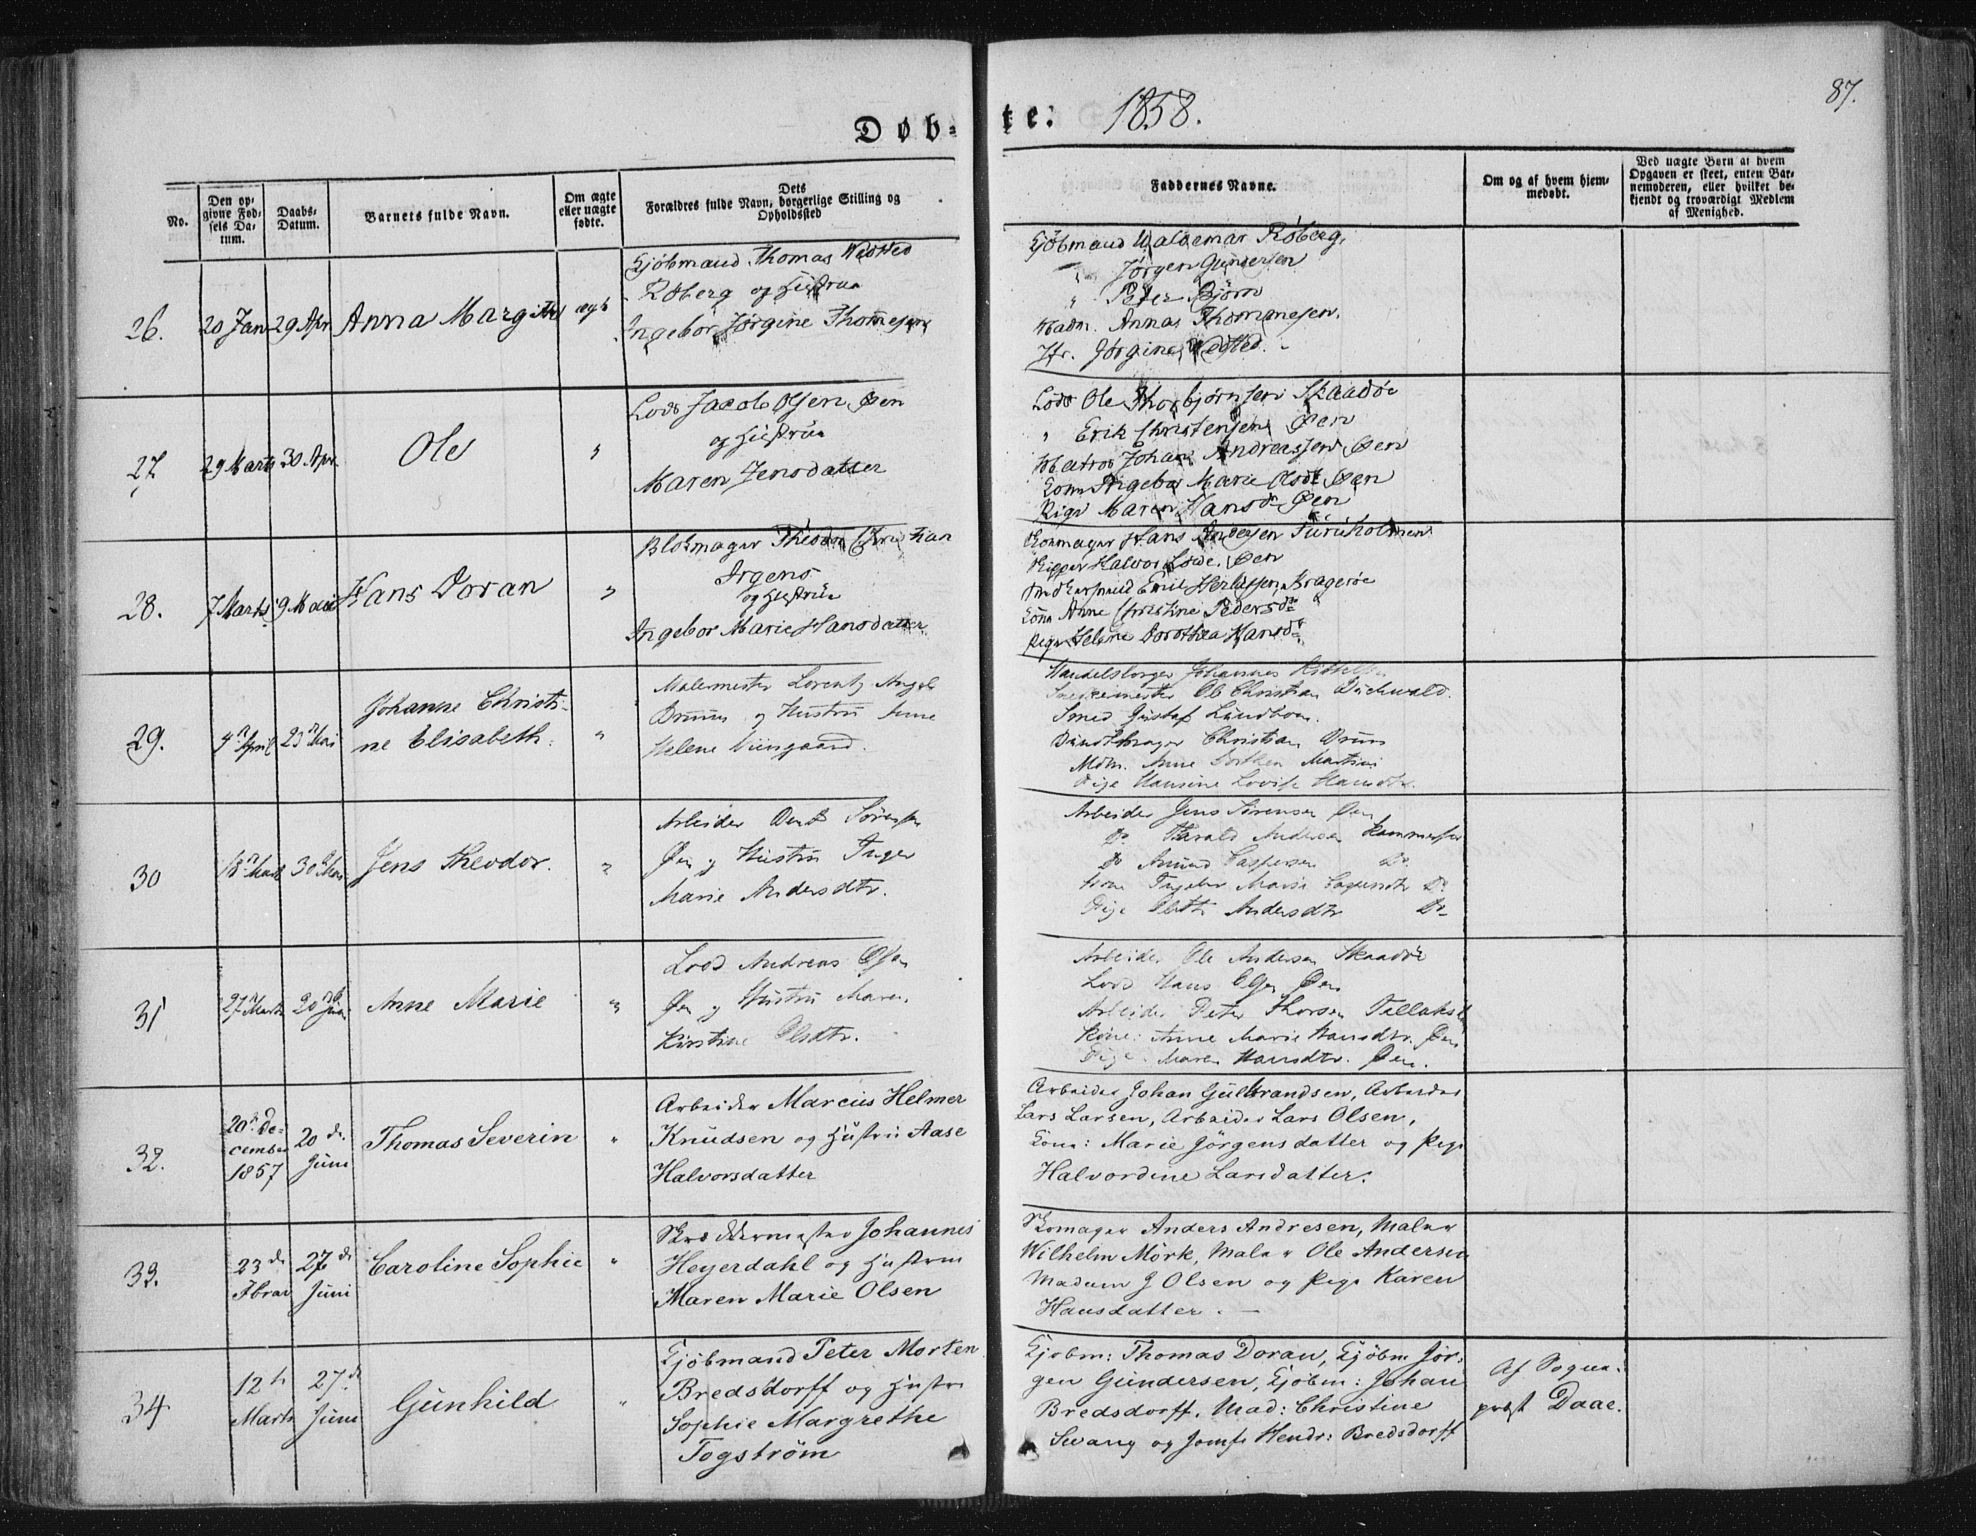 Døb-
te:
1858.
87.
No.
Den op-
givne Fød-
sels Da-
tum.
Daabs-
Datum.
Barnets fulde Navn.
Om ægte
eller uægte
fødte.
Dets
Forældres fulde Navn, borgerlige Stilling og
Opholdssted
Faddernes Navne.
Om og af hvem hjem-
medøbt.
Ved uægte Børn af hvem
Opgaven er skeet, enten Bar-
nemoderen, eller hvilket be-
kjendt og troværdigt Medlem
af Menighed.
26.
20 Jan
29 Apr
Anna Margithe
ægte
Kjøbmand Thomas Wedsted
Röberg og Hustrue
Ingebor Jörgine Thommesen
Kjöbmand Waldemar Röberg,
" Jörgen Gundersen
" Peter Björn
Madm. Anna Thommesen.
Jfr. Jörgine Wedsted. -
27
29 Marts
30 Apr
Ole
"
Lods Jacob Olsen Øen
og Hustrue
Maren Jensdatter
Lods Ole Thorbjörnsen Skaadøe
" Erik Christensen Øen
Matros Johan Andreassen Øen
Kone Ingebor Marie Olsdt Øen
Pige Maren Hansdt Øen
28.
7 Marts
9 Mai
Hans Doran
"
Blokmager Theodor Christian
Irgens
og Hustrue
Ingebor Marie Hansdatter
Hans Andersen Furuholmen
Skipper Halvor Øen
Emil Kragerøe
Kone Anne Christine Pedersdtr
Pige Helene Dorothea Hansdtr
29.
4de April
23de Mai
Johanne Christi-
ne Elisabeth.
"
Malermester Lorentz Angel
Bruun og Hustru Anne
Helene Wiingaard.
Handelsborger Johannes Kittelsen
Ole Christian
Smed Gustaf Lundbom.
Christian Bruun
Mdm. Anne Dorthea Martini
Pige Hansine Lovise Hansdtr.
30
18de Marts
30te Mai
Jens Theodor.
"
Arbeider Sörensen
Øen og Hustru Inger
Marie Andersdtr.
Arbeider Jens Sörensen Øen
Do Harald Andersen
Do Amund Caspersen Do
Kone Ingebor Marie Do
Pige Andersdtr Do
31
27de Marts
20de Juni
Anne Marie
"
Lods Andreas Olsen
Øen og Hustru Maren
Kirstine Olsdtr.
Arbeider Ole Andersen Skaadöe
Lods Hans Olsen Øen
Arbeider Peter Thorsen
Kone: Anne Marie Hansdtr. Øen
Pige: Maren Hansdtr. Øen.
32.
20de De-
cember
1857
20 de
Juni
Thomas Severin
"
Arbeider Marcus Helmer
Knudsen og Hustru Aase
Halvorsdatter
Arbeider Johan Gulbrandsen, Arbeider
Lars Larsen, Arbeider Lars Olsen,
Kone: Marie Jörgensdatter og Pige
Halvordine Larsdatter.
33.
23 de
Fbrar
27 de
Juni
Caroline Sophie
"
Skræddermester Johannes
Heyerdahl og Hustru
Maren Marie Olsen
Skomager Anders Andresen, Maler
Wilhelm Mörk, Maler Ole Andersen
Madam G Olsen og Pige Karen
Hansdatter. -
34
12te
Marts
27de
Juni
Gunhild
"
Kjöbmand Peter Morten
Bredsdorff og Hustru
Sophie Margrethe
Togström
Kjöbm: Thomas Doran, Kjöbm Jör-
gen Gundersen, Kjöbm: Johan
Bredsdorff, Mad: Christine
Swang og Jomfr Hendr: Bredsdorff
Af Sogne-
præst Daae.